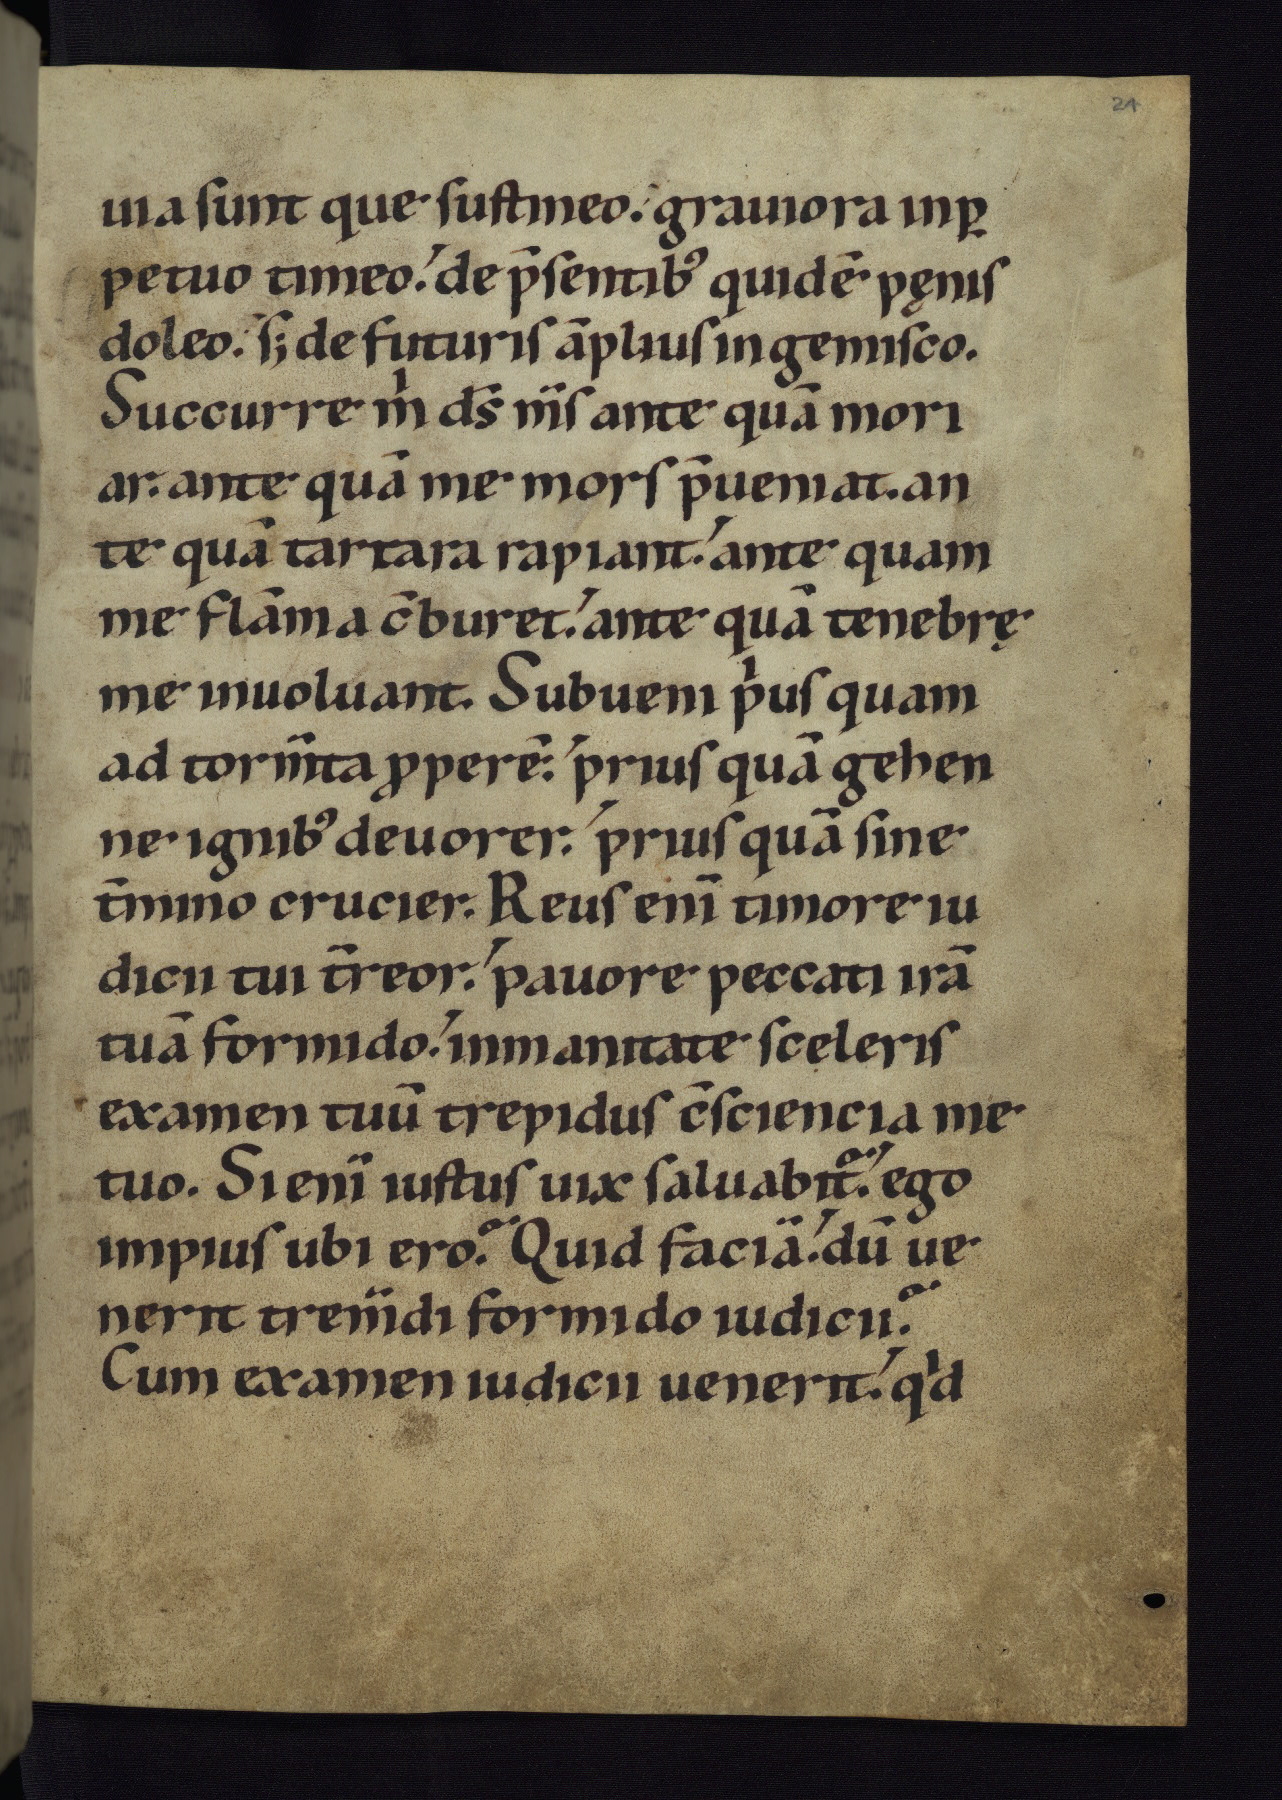 24
uia sunt que sustineo. grauiora inp̱
petuo timeo. de p̄sentib; quidē pęnis
doleo. s; de futuris āplius ingemisco.
Succurre m̍ ds̄ m̄s ante quā mori
ar. ante quā me mors p̄ueniat. an
te quā tartara rapiant. ante quam
me flāma c̄buret. ante quā tenebrę
me inuoluant. Subueni p̍us quam
ad torm̄ta ꝓperē. prius quā gehen
ne ignib; deuorer. prius quā sine
t̄mino crucier. Reus enī timore iu
dicii tui t̄reor. pauore peccati irā
tuā formido. inmanitate sceleris
examen tuū trepidus c̄sciencia me
tuo. Si enī iustus uix saluabit᷑. ego
impius ubi ero? Quid faciā. dū ue
nerit trem̄di formido iudicii?
Cum examen iudicii uenerit. q̍d